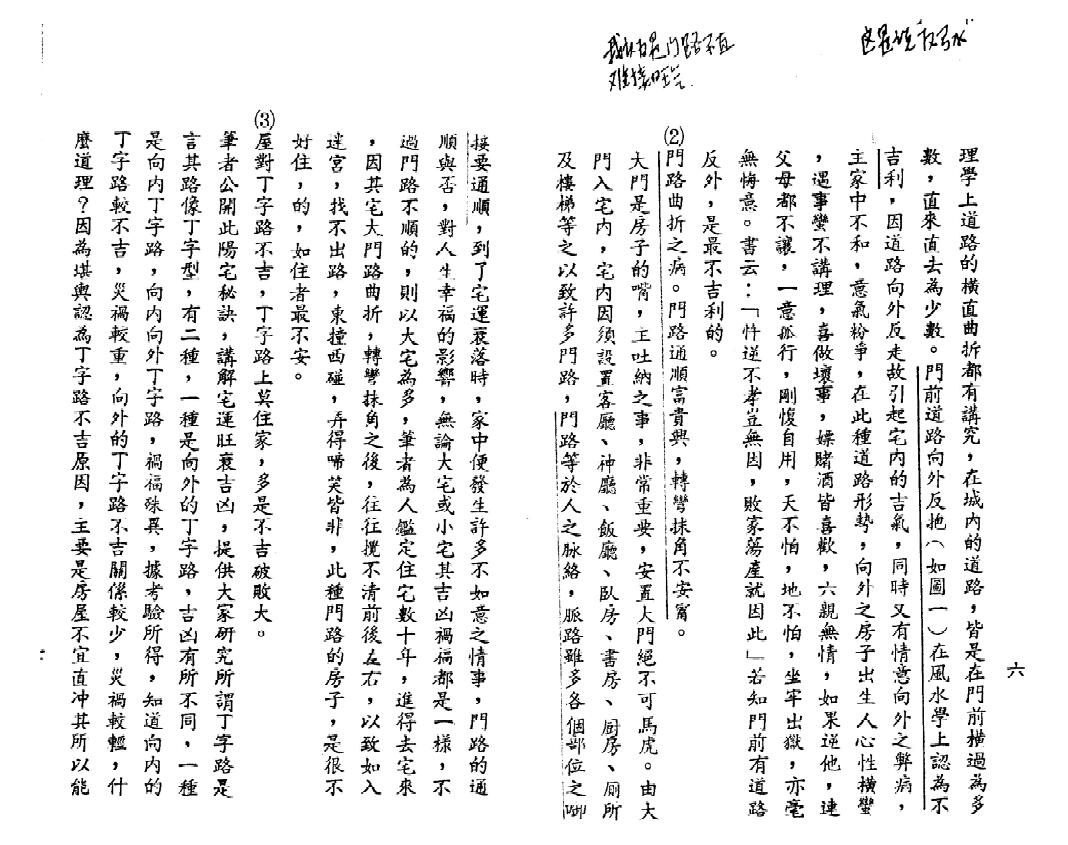 这是说"反弓水"
我认为是门路不直
难接旺气
六
理學上道路的橫直曲折都有講究，在城內的道路，皆是在門前橫過為多
數，直來直去為少數。門前道路向外反抱（如圖一）在風水學上認為不
吉利，因道路向外反走故引起宅內的吉氣，同時又有情意向外之弊病，
主家中不和，意氣紛爭，在此種道路形勢，向外之房子出生人心性橫蠻
，遇事蠻不講理，喜做壞事，嫖賭酒皆喜歡，六親無情，如果逆他，連
父母都不讓，一意孤行，剛愎自用，天不怕，地不怕，坐牢出獄，亦毫
無悔意。書云：「忤逆不孝豈無因，敗家蕩產就因此」若知門前有道路
反外，是最不吉利的。
(2)門路曲折之病。門路通順富貴興，轉彎抹角不安甯。
大門是房子的嘴，主吐納之事，非常重要，安置大門絕不可馬虎。由大
門入宅內，宅內因須設置客廳、神廳、飯廳、臥房、書房、厨房、厠所
及樓梯等之以致許多門路，門路等於人之脉絡，脈路雖多各個部位之啣
接要通順，到了宅運衰落時，家中便發生許多不如意之情事，門路的通
順與否，對人生幸福的影響，無論大宅或小宅其吉凶禍福都是一樣，不
過門路不順的，則以大宅為多，筆者為人鑑定住宅數十年，進得去宅來
，因其宅大門路曲折，轉彎抹角之後，往往攪不清前後左右，以致如入
迷宮，找不出路，東撞西碰，弄得啼笑皆非，此種門路的房子，是很不
好住，的，如住者最不安。
(3)屋對丁字路不吉，丁字路上莫住家，多是不吉破敗大。
筆者公開此陽宅秘訣，講解宅運旺衰吉凶，提供大家研究所謂丁字路是
言其路像丁字型，有二種，一種是向外的丁字路，吉凶有所不同，一種
是向內丁字路，向內向外丁字路，禍福殊異，據考驗所得，知道向內的
丁字路較不吉，災禍較重，向外的丁字路不吉關係較少，災禍較輕，什
麼道理？因為堪輿認為丁字路不吉原因，主要是房屋不宜直冲其所以能